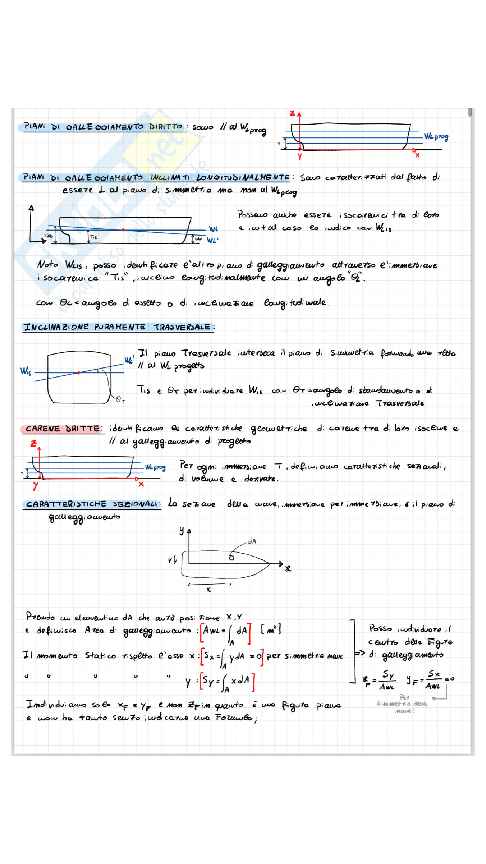 PIANI DI GALLEGGIAMENTO DIRITTO: sono // al WLprog
z
WLprog
y
x
PIANI DI GALLEGGIAMENTO INCLINATI LONGITUDINALMENTE: sono caratterizzati dal fatto di
essere ⊥ al piano di simmetria ma non al WLprog
Possono anche essere isocarenici tra di loro
e in tal caso lo indico con WLIS
WL
WL'
Noto WLIS, posso identificare l'altro piano di galleggiamento attraverso l'immersione
isocarenica "TIS", inclino longitudinalmente con un angolo "θL".
con θL = angolo di assetto o di inclinazione longitudinale.
INCLINAZIONE PURAMENTE TRASVERSALE:
WIS
WL'
θT
Il piano Trasversale interseca il piano di simmetria formando una retta
// al WL progetto
TIS e θT per individuare WIS con θT = angolo di sbandamento o di
inclinazione Trasversale
CARENE DRITTE: identificano le caratteristiche geometriche di carene tra di loro isocline e
// al galleggiamento di progetto
z
WLprog
y
x
Per ogni immersione T, definiamo caratteristiche sezionali,
di volume e derivate.
CARATTERISTICHE SEZIONALI: La sezione della nave, immersione per immersione, è il piano di
galleggiamento
y
dA
x
x
Prendo un elementino dA che avrà posizione x, y
e definisco Area di galleggiamento: [AWL = ∫A dA] [m²]
Il momento Statico rispetto l'asse x: [Sx = ∫A y dA = 0] per simmetria nave
" " " " " y: [Sy = ∫A x dA]
Posso individuare il
centro della figura
=> di galleggiamento
xF = Sy/AWL yF = Sx/AWL = 0
Per
simmetria della
nave!
Individuiamo solo xF e yF e non zF in quanto è una figura piana
e non ha tanto senso indicarne una Formula;